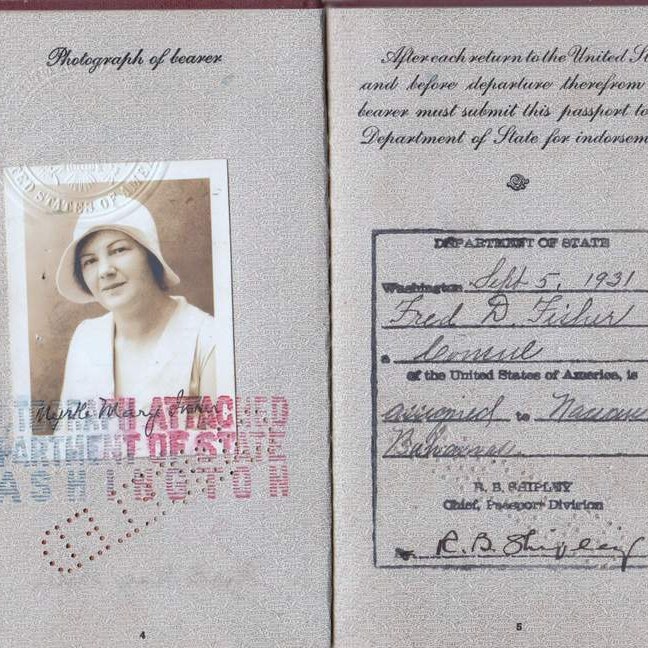 Photograph of bearer
UNITED STATES OF AMERICA
Myrtle Mary Fisher
ATTACHED
DEPARTMENT OF STATE
WASHINGTON
4
After each return to the United St
and before departure therefrom
bearer must submit this passport to
Department of State for indorsem
DEPARTMENT OF STATE
Washington Sept 5, 1931
Fred D. Fisher
a Consul
of the United States of America, is
assigned to Nassau
Bahamas.
R. B. SHIPLEY
Chief, Passport Division
R. B. Shipley
5